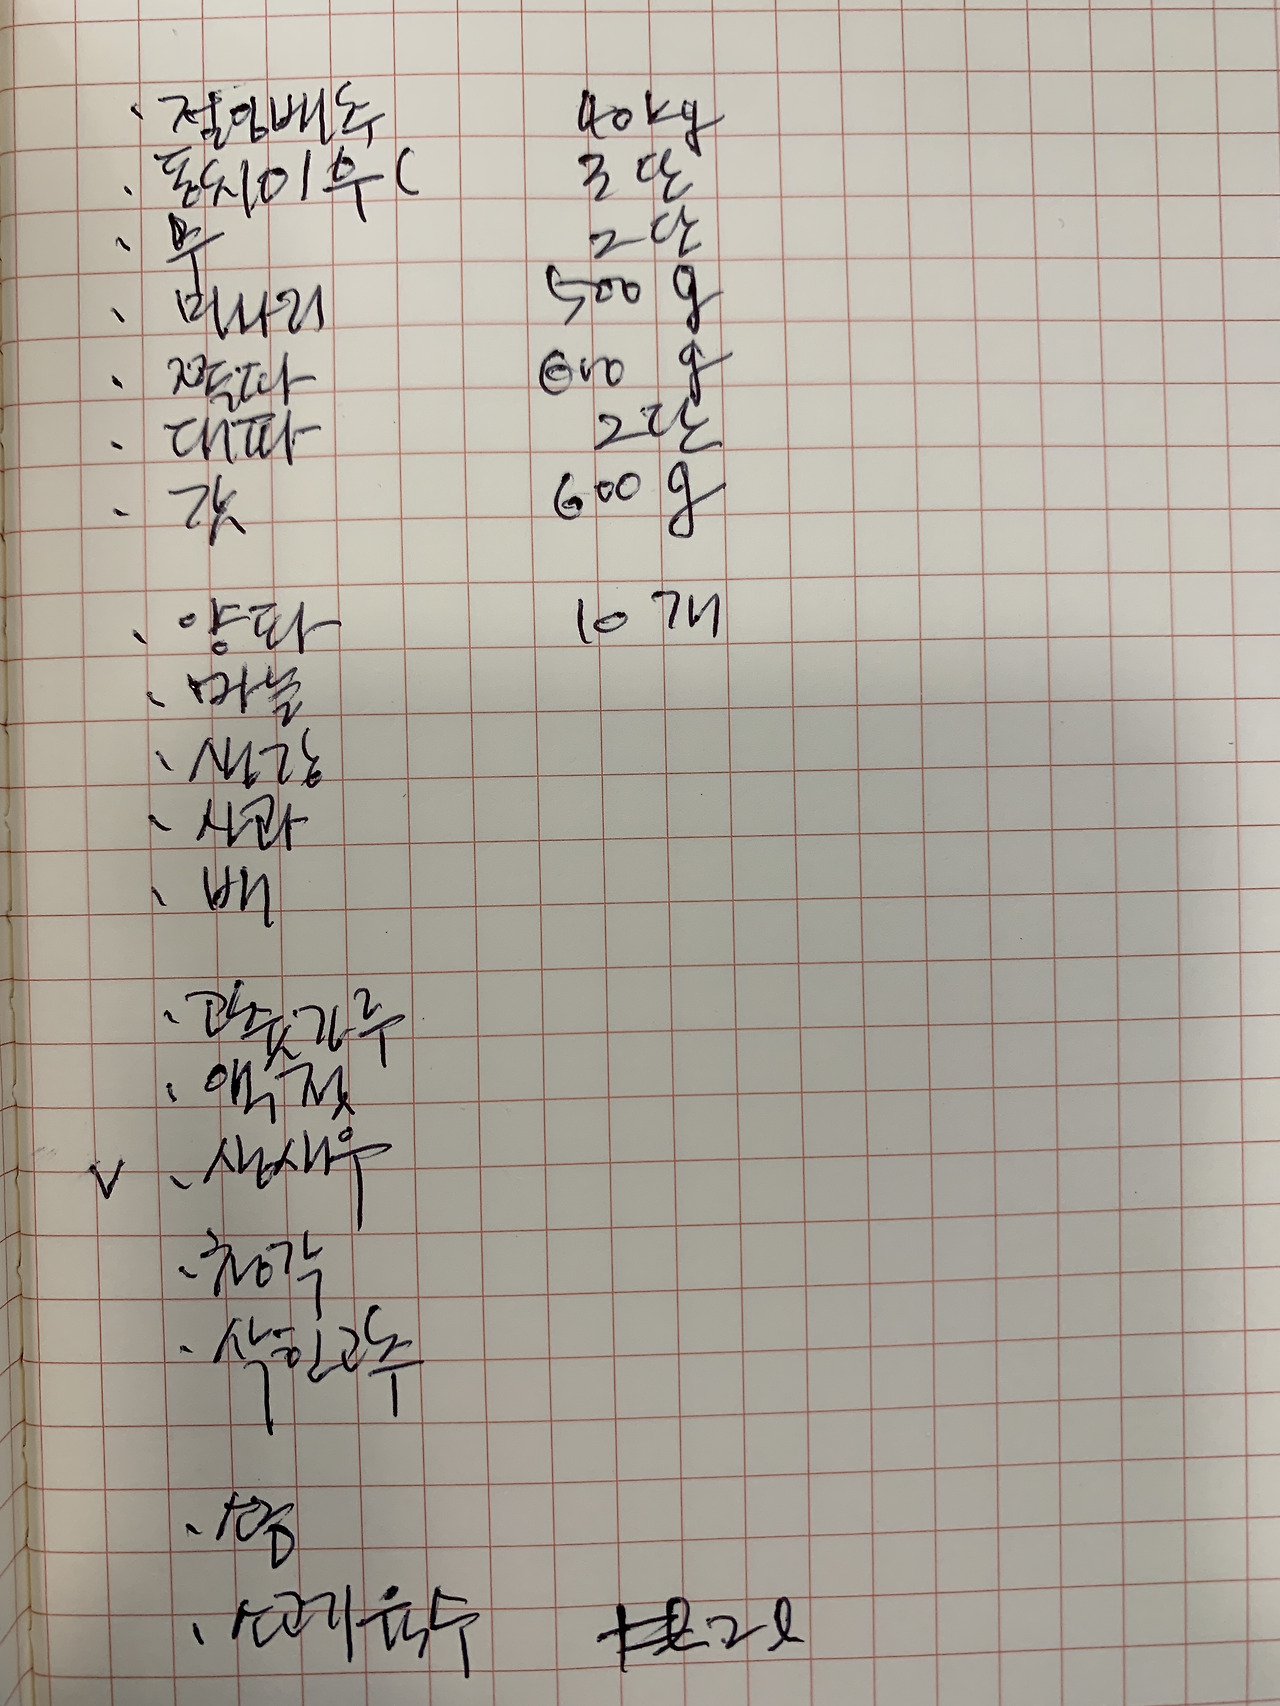 · 절임배추 40kg
· 동치미무 ( 3단
· 무 2단
· 미나리 500g
· 쪽파 600g
· 대파 2단
· 갓 600g
· 양파 10개
· 마늘
· 생강
· 사과
· 배
· 고춧가루
· 액젓
V · 생새우
· 청각
· 삭힌고추
· 소금
· 소고기육수 2l